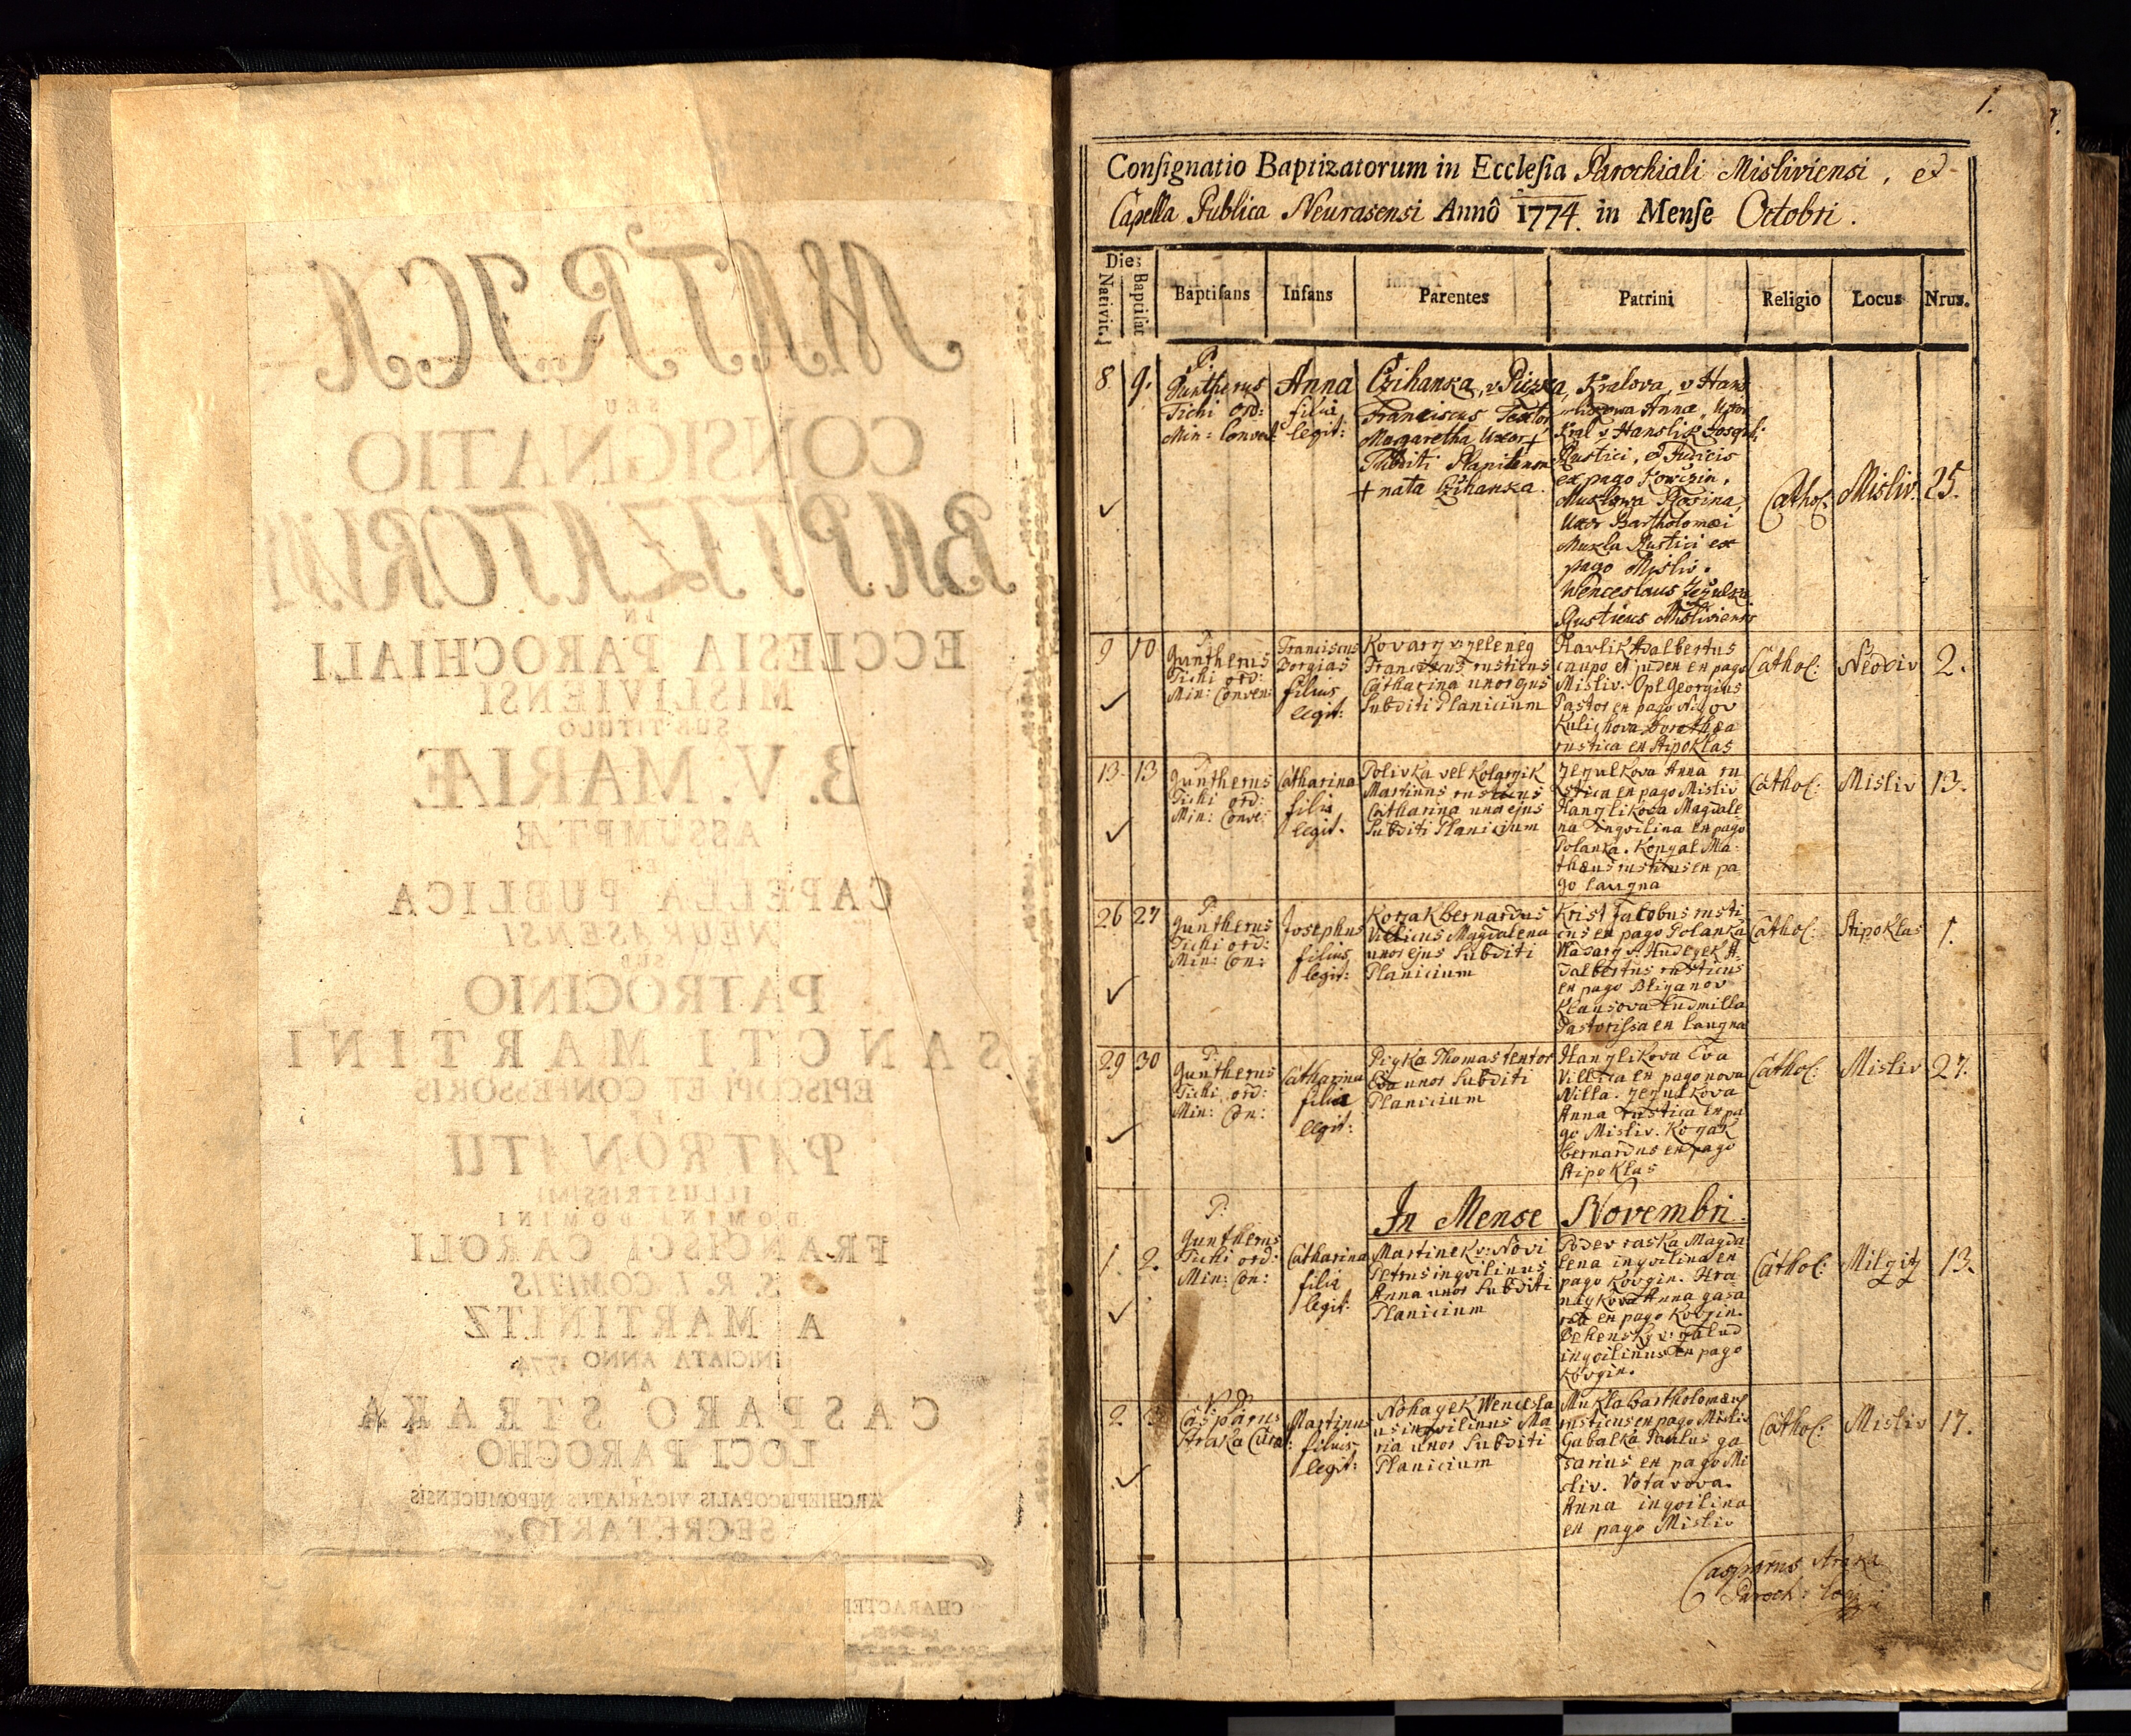 MATRICA
SEU
CONSIGNATIO
BAPTIZATORUM
IN
ECCLESIA PAROCHIALI
MISLIVIENSI
SUB TITULO
B. V. MARIÆ
ASSUMPTÆ
ET
CAPELLA PUBLICA
NEURASENSI
SUB
PATROCINIO
SANCTI MARTINI
EPISCOPI ET CONFESSORIS
PATRONATU
ILLUSTRISSIMI
DOMINI DOMINI
FRANCISCI CAROLI
S. R. I. COMITIS
A MARTINITZ
INICIATA ANNO 1774
A
CASPARO STRAKA
LOCI PAROCHO
ARCHIEPISCOPALIS VICARIATUS NEPOMUCENSIS
SECRETARIO.
CHARACTER
1.
Consignatio Baptizatorum in Ecclesia Parochiali Misliviensi, et
Capella Publica Neurasensi Annô 1774. in Mense Octobri.
Dies
Nativit.
Baptisat
Baptisans
Infans
Parentes
Patrini
Religio
Locus
Nrus.
8
9.
P.
Guntherus
Tichi Ord:
Min: Convent
Anna
filia
legit:
Czihanka, v Piczka,
Franciscus Textor
Margaretha Uxor +
Subditi Planicens
+ nata Czihanka.
Kralova, v Hans
likowa Anna, Uxor
Kral v Hanslik Josephi
Rustici, et Judicis
ex pago Kowczin,
Muklowa Rosina,
Uxor Bartholomæi
Mukla Rustici ex
pago Misliv.
Wenceslaus
Rusticus Misliviensis
Cathol:
Misliv.
25.
9
10
P.
Guntherus
Tichi ord:
Min: Conven:
Franciscus
Borgias
filius
legit:
Kovarz v zeleney
Franciscus rusticus
Catharina uxor ejus
Subditi Planicium
Havlik Adalbertus
caupo et judex ex pago
Misliv. Opl Georgius
Pastor ex pago
Dorothea
rustica ex Stipoklas
Cathol:
Neddiv
2.
13.
13
P.
Guntherus
Tichi ord:
Min: Conve:
Catharina
filia
legit.
Polivka vel
Martinus rusticus
Catharina uxor ejus
Subditi Planicium
Anna ru
stica ex pago Misliv
Hanzlikova Magdale
na inqvilina ex pago
Polanka. Ma
thæus rusticus ex pa
go
Cathol:
Misliv
13.
26
27
P.
Guntherus
Tichi ord:
Min: Con:
Josephus
filius
legit:
Kozak bernardus
Villicus Magdalena
uxor ejus Subditi
Planicium
Krist Jacobus rusti
cus ex pago Polanka
A
dalbertus rusticus
ex pago
Klausova Ludmilla
Pastorissa ex
Cathol:
Stipoklas
1.
29
30
P.
Guntherus
Tichi ord:
Min: Con:
Catharina
filia
legit:
Thomas textor
Eva uxor Subditi
Planicium
Hanzlikova Eva
Villica ex pago nova
Villa.
Anna rustica ex pa
go Misliv. Kozak
bernardus ex pago
Stipoklas
Cathol:
Misliv
27.
In Mense Novembri.
1.
2.
P.
Guntherus
Tichi ord:
Min: Con:
Catharina
filia
legit:
Martinek v: Novi
Petrus inqvilinus
Anna uxor Subditi
Planicium
Magda
lena inqvilina ex
pago Kovzin.
Anna
ex pago Kovzin.
inqvilinus ex pago
Kovzin.
Cathol:
13.
2.
P.
Casparus
Straka Curat:
Martinus
filius
legit:
Nohagek Wencesla
us inqvilinus Ma
ria uxor Subditi
Planicium
Mukla bartholomæus
rusticus ex pago Misliv
Gabalka Paulus ga
sarius ex pago Mi
sliv. Votavova
Anna inqvilina
ex pago Misliv
Cathol:
Misliv
17.
Casparus Straka
Paroch: loci